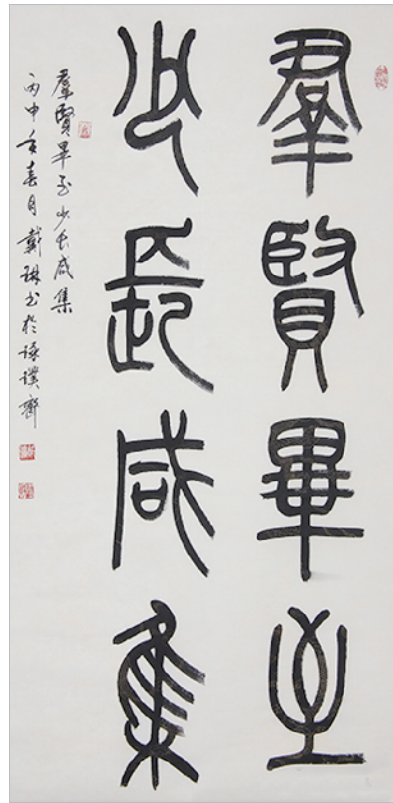 羣賢畢至
少長咸集
羣賢畢至少長咸集
丙申年春月戴琳书於詠璞齋